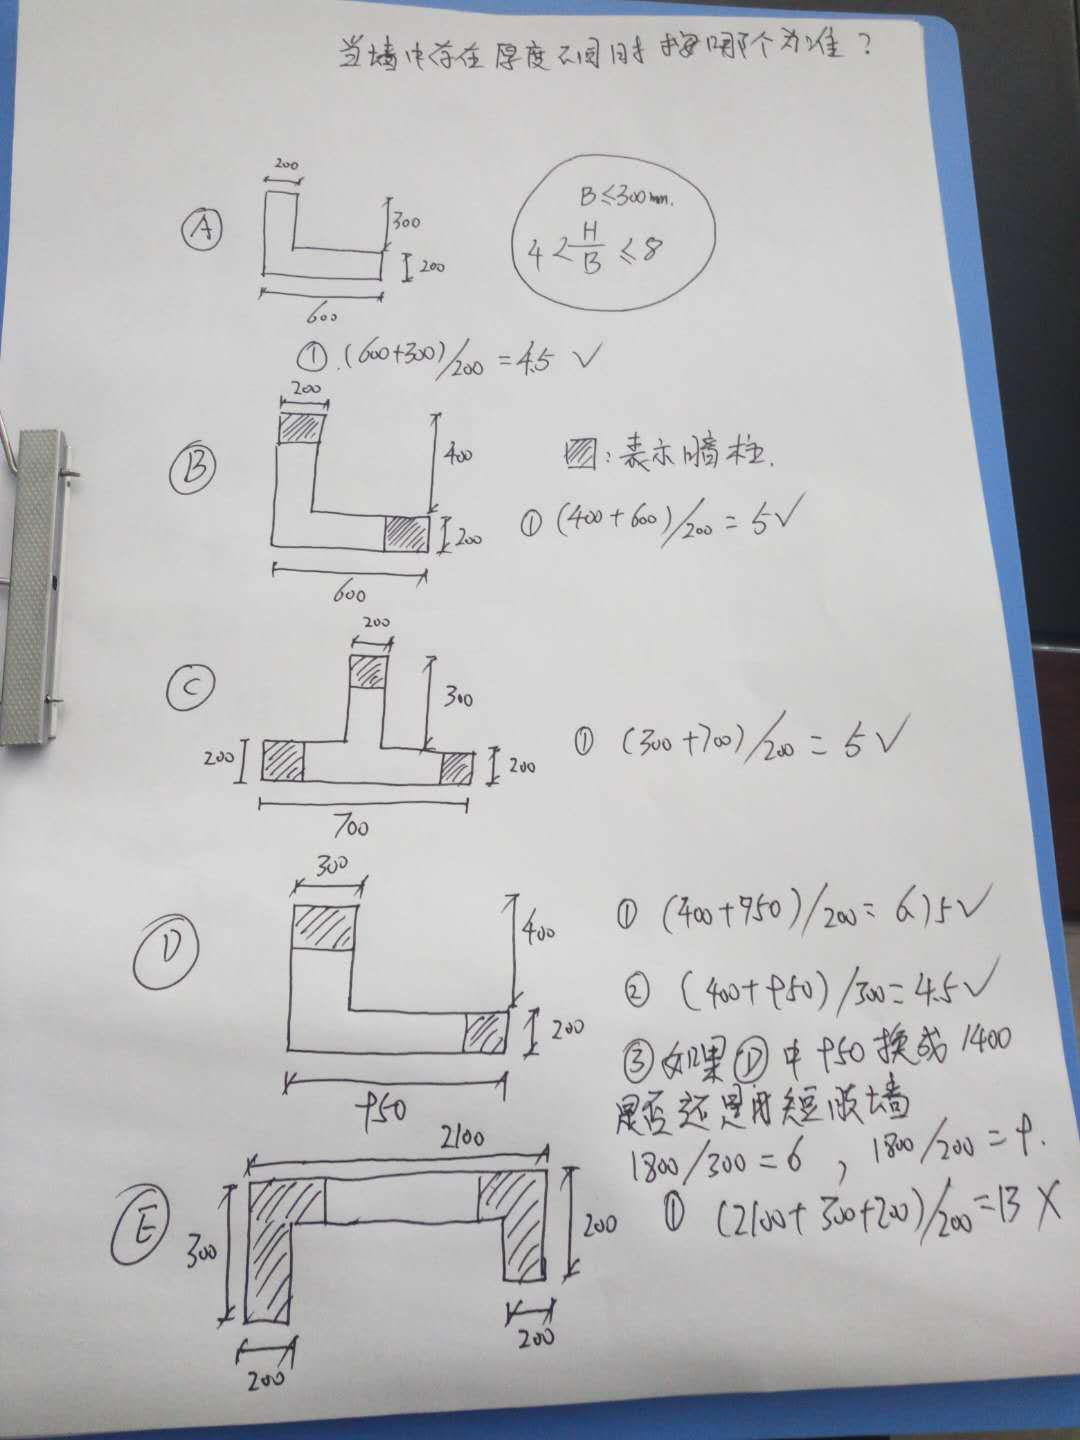 当墙中存在厚度不同时按哪个为准？
200
A
300
200
600
B≤300mm.
4<H/B≤8
① (600+300)/200=4.5 ✓
200
B
400
200
600
▨:表示暗柱.
① (400+600)/200=5 ✓
200
C
300
200
200
700
① (300+700)/200=5 ✓
300
D
400
200
950
① (400+950)/200=6.75 ✓
② (400+950)/300=4.5 ✓
③ 如果Ⓓ中950换成1400
是否还是用短肢墙
1800/300=6, 1800/200=9.
2100
E
300
200
200
200
① (2100+300+200)/200=13 ✗